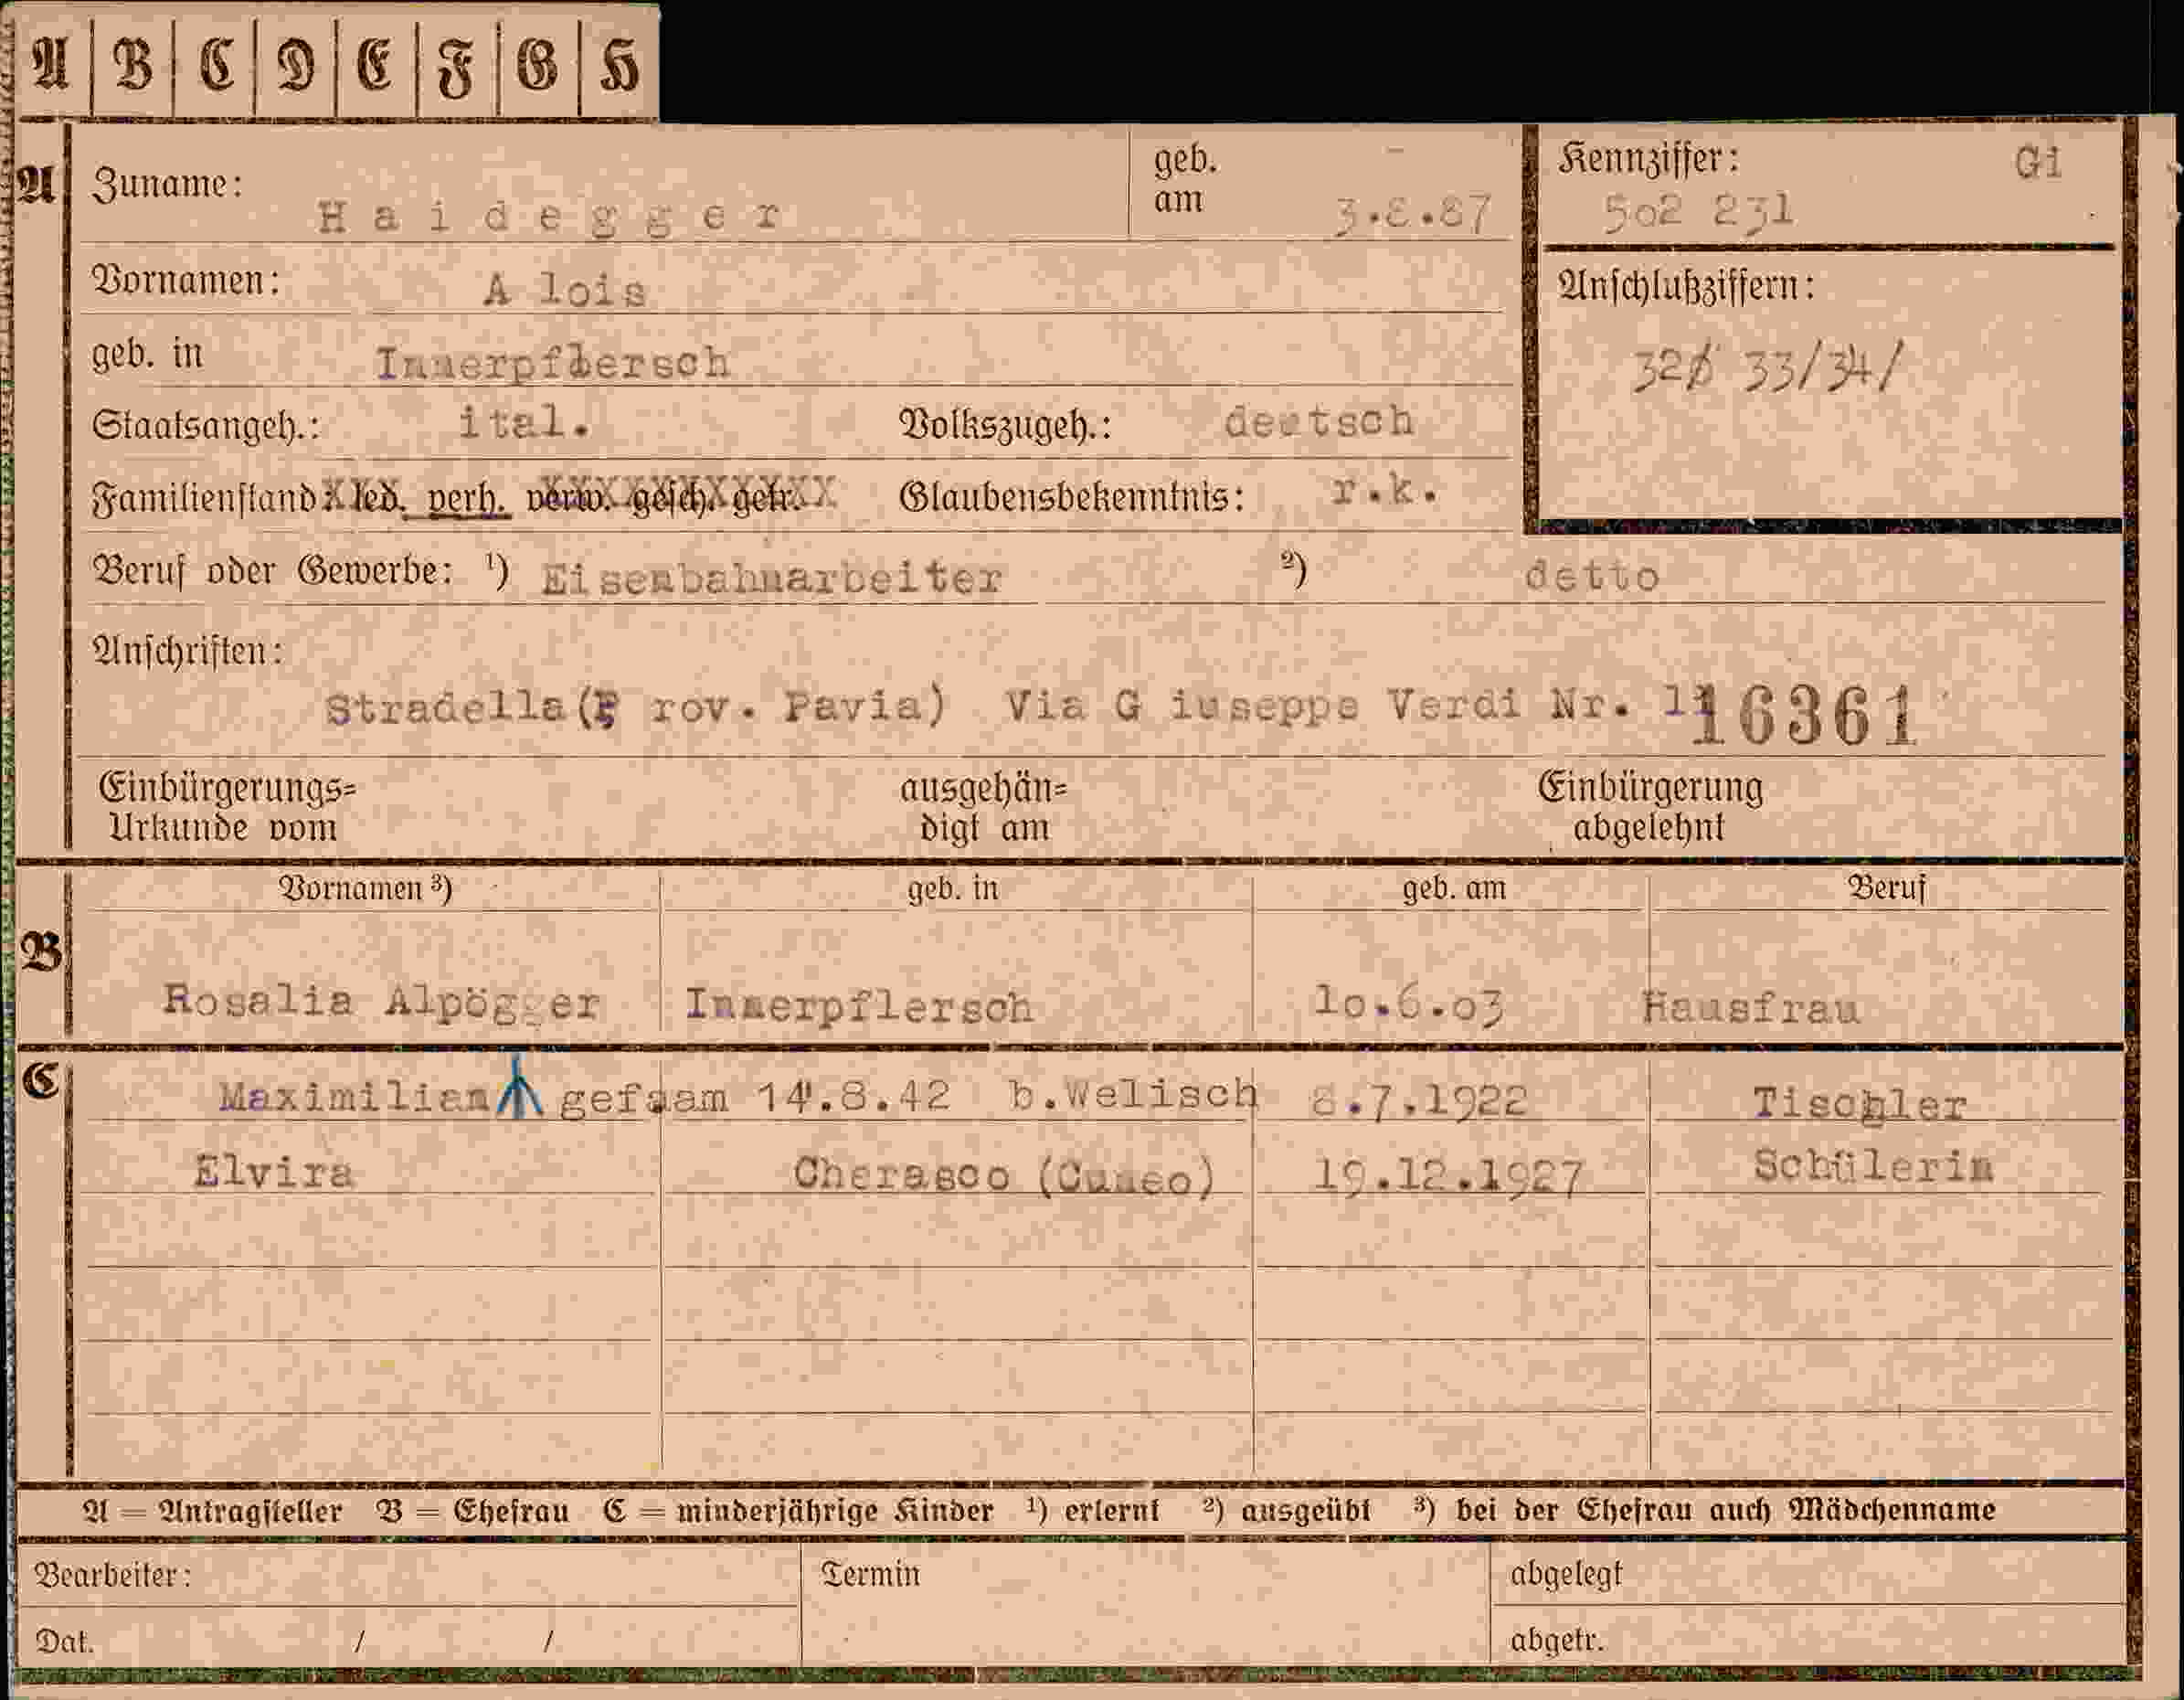 A B C D E F G H
A Zuname: Haidegger geb. am 3.8.87 Kennziffer: Gi
502 231
Vornamen: A lois Anschlußziffern:
geb. in Innerpflersch 320 33/34/
Staatsangeh.: ital. Volkszugeh.: deutsch
Familienstand: led. verh. verw. gesch. getr. Glaubensbekenntnis: r.k.
Beruf oder Gewerbe: ¹) Eisenbahnarbeiter ²) detto
Anschriften:
Stradella(P rov. Pavia) Via G iuseppe Verdi Nr. 16361
Einbürgerungs=
Urkunde vom
ausgehän=
digt am
Einbürgerung
abgelehnt
Vornamen ³) geb. in geb. am Beruf
B Rosalia Alpögger Innerpflersch 10.6.03 Hausfrau
C Maximilian gef. am 14.8.42 b.Welisch 8.7.1922 Tischler
Elvira Cherasco (Cuneo) 19.12.1927 Schülerin
A = Antragsteller B = Ehefrau C = minderjährige Kinder ¹) erlernt ²) ausgeübt ³) bei der Ehefrau auch Mädchenname
Bearbeiter: Termin abgelegt
Dat. / / abgetr.